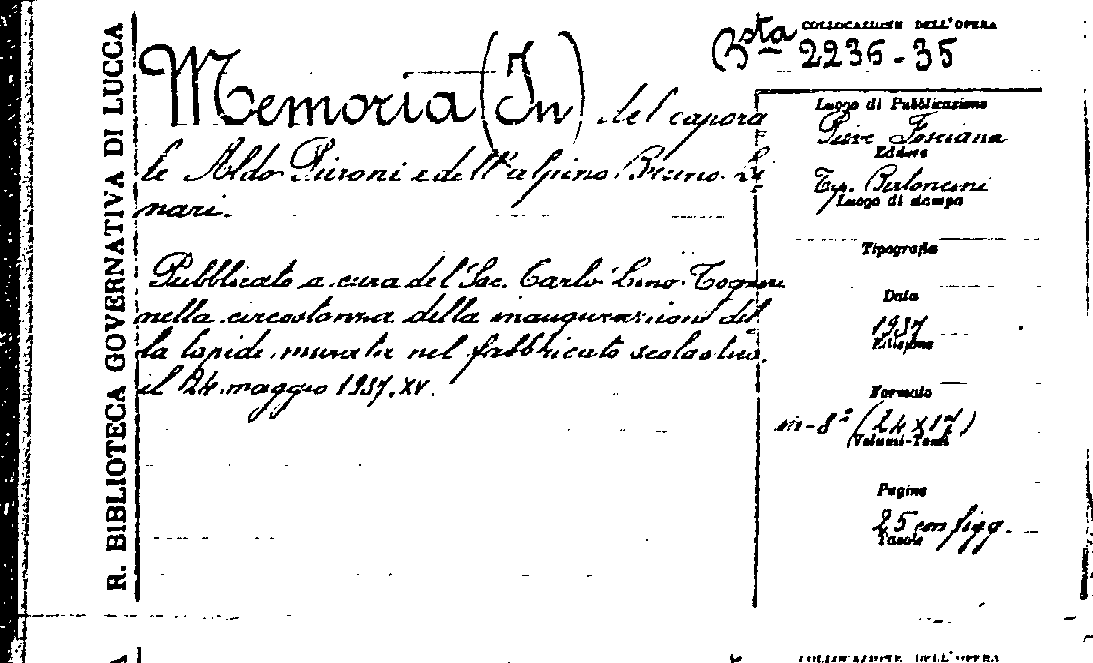 R. BIBLIOTECA GOVERNATIVA DI LUCCA
COLLOCAZIONE DELL'OPERA
Bsta 2236-35
Memoria (In) del capora
le Aldo Pieroni e dell'alpino Bruno Li
nari.
Pubblicato a cura del Sac. Carlo Lino Togneri
nella circostanza della inaugurazione del
la lapide murata nel fabbricato scolastico
il 24 maggio 1937.XV.
Luogo di Pubblicazione
Pieve Fosciana
Editore
Tip. Bertoncini
Luogo di stampa
Tipografia
Data
1937
Edizione
Formato
in-8° (24x17)
Volumi-Tomi
Pagine
25 con figg.
Tavole
COLLOCAZIONE DELL'OPERA